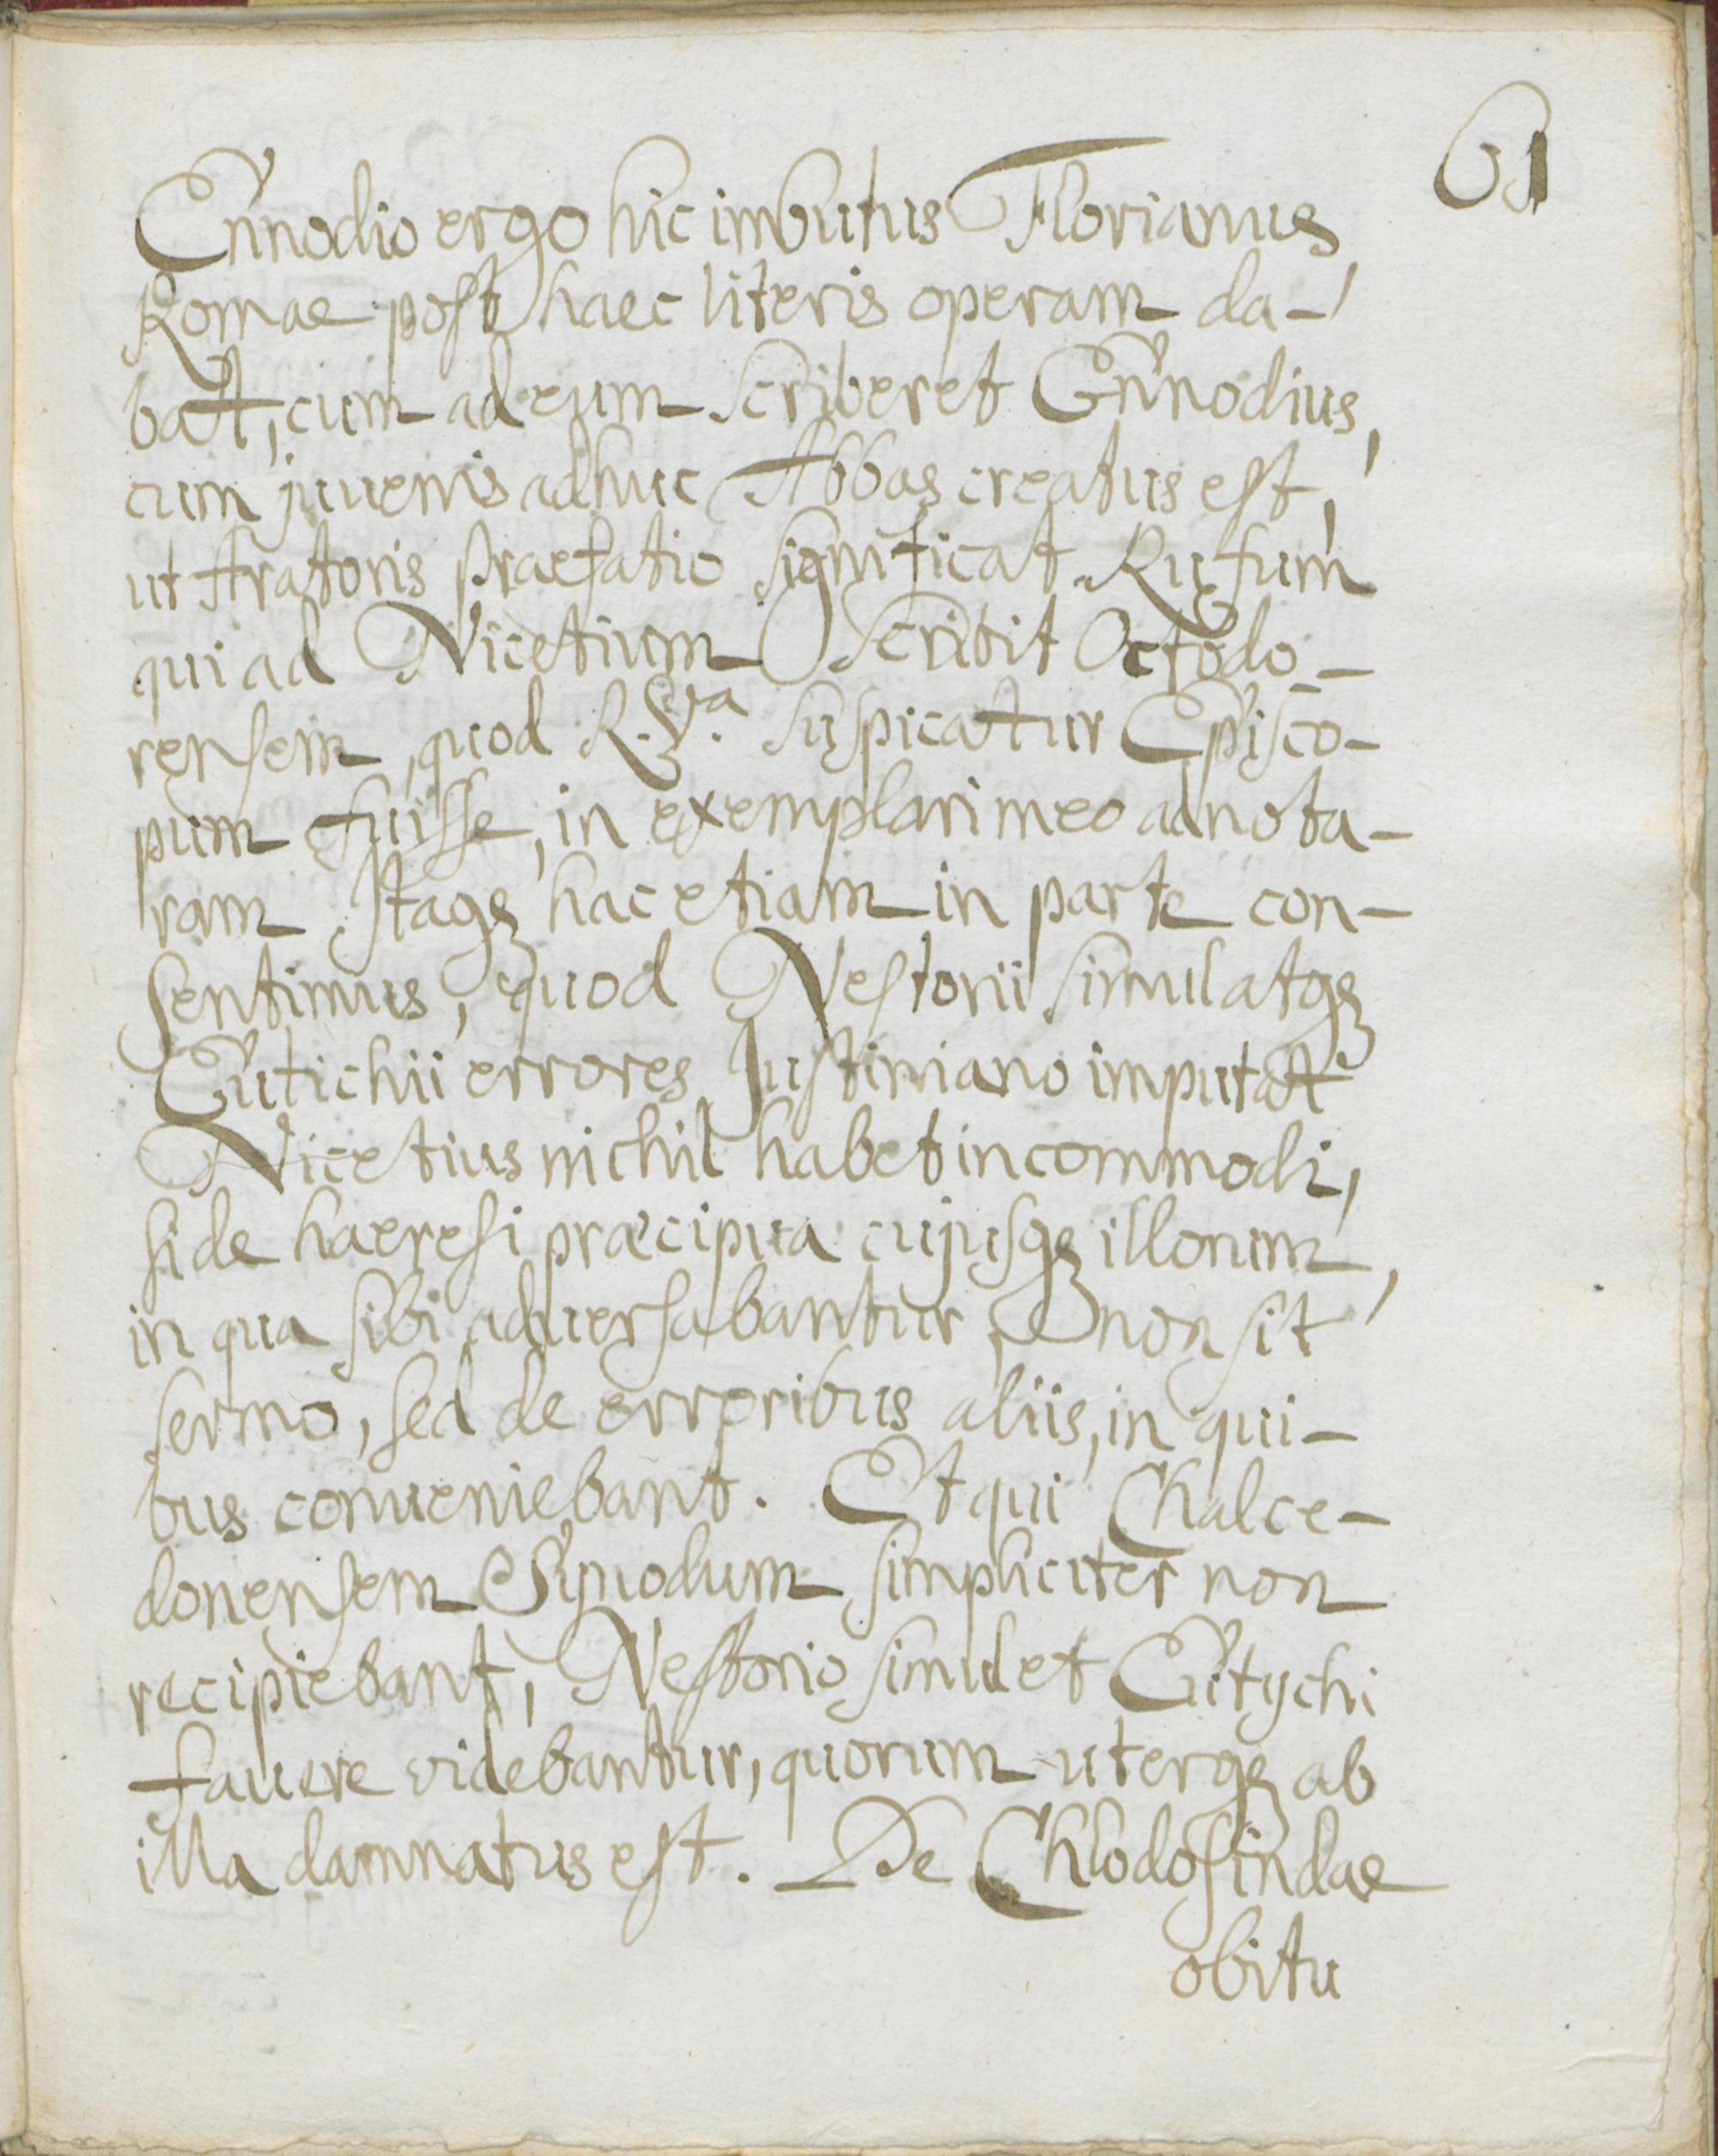 61
Ennodio ergo hic imbutus Florianus
Romae post haec literis operam da-
bat, cum ad eum scriberet Ennodius,
cum juuenis adhuc Abbas creatus est,
ut Aratoris praefatio significat Rufum
qui ad Nicetium scribit Octodo-
rensem, quod R. Vra. suspicatur Episco-
pum fuisse, in exemplari meo adnota-
ram Itaqꝫ hac etiam in parte con-
sentimus, quod Nestorii simul atqꝫ
Eutichii errores Justiniano imputat
Nicetius nichil habet incommodi,
si de haeresi præcipua cujusqꝫ illorum,
in qua sibi aduersabantur, non sit
sermo, sed de erroribus aliis, in qui-
bus conueniebant. Et qui Chalce-
donensem Synodum simpliciter non
recipiebant, Nestorio simul et Eutychi
fauere videbantur, quorum uterqꝫ ab
illa damnatus est. De Chlodosindae
obitu